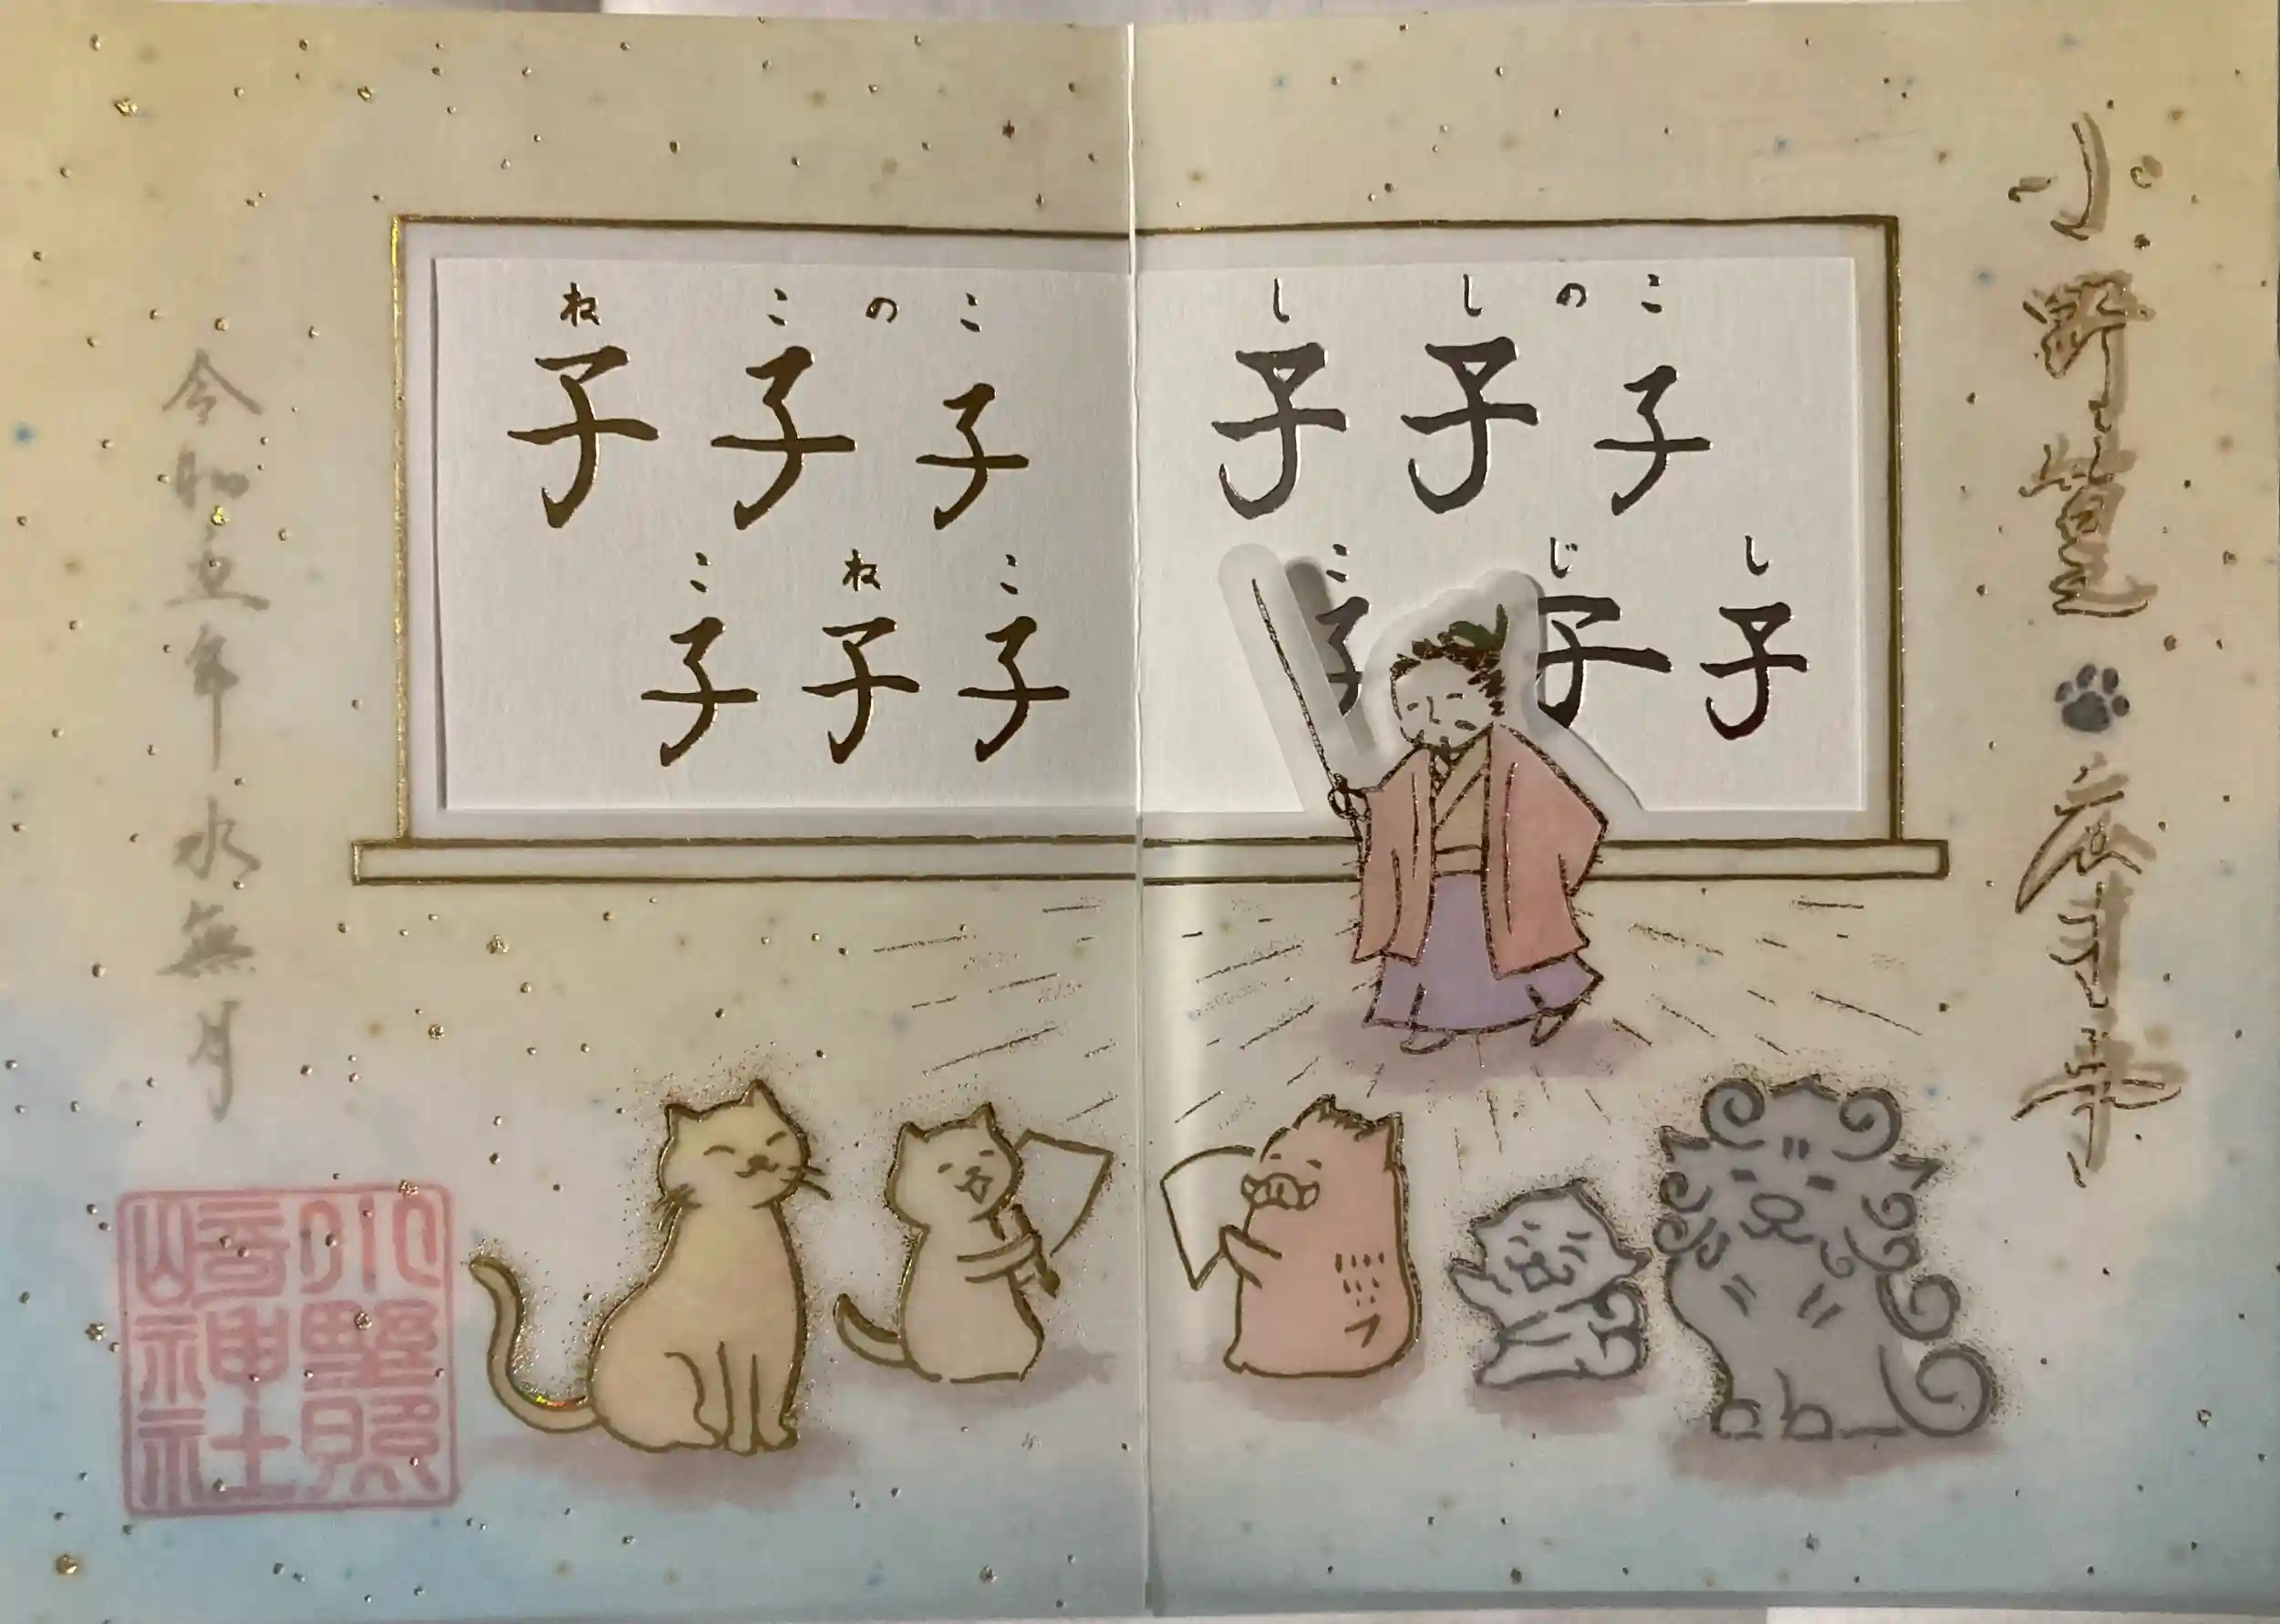 小野篁 広才事
ねこのこ
子子子
こねこ
子子子
ししのこ
子子子
こじし
子子子
令和五年水無月
小野照
崎神社